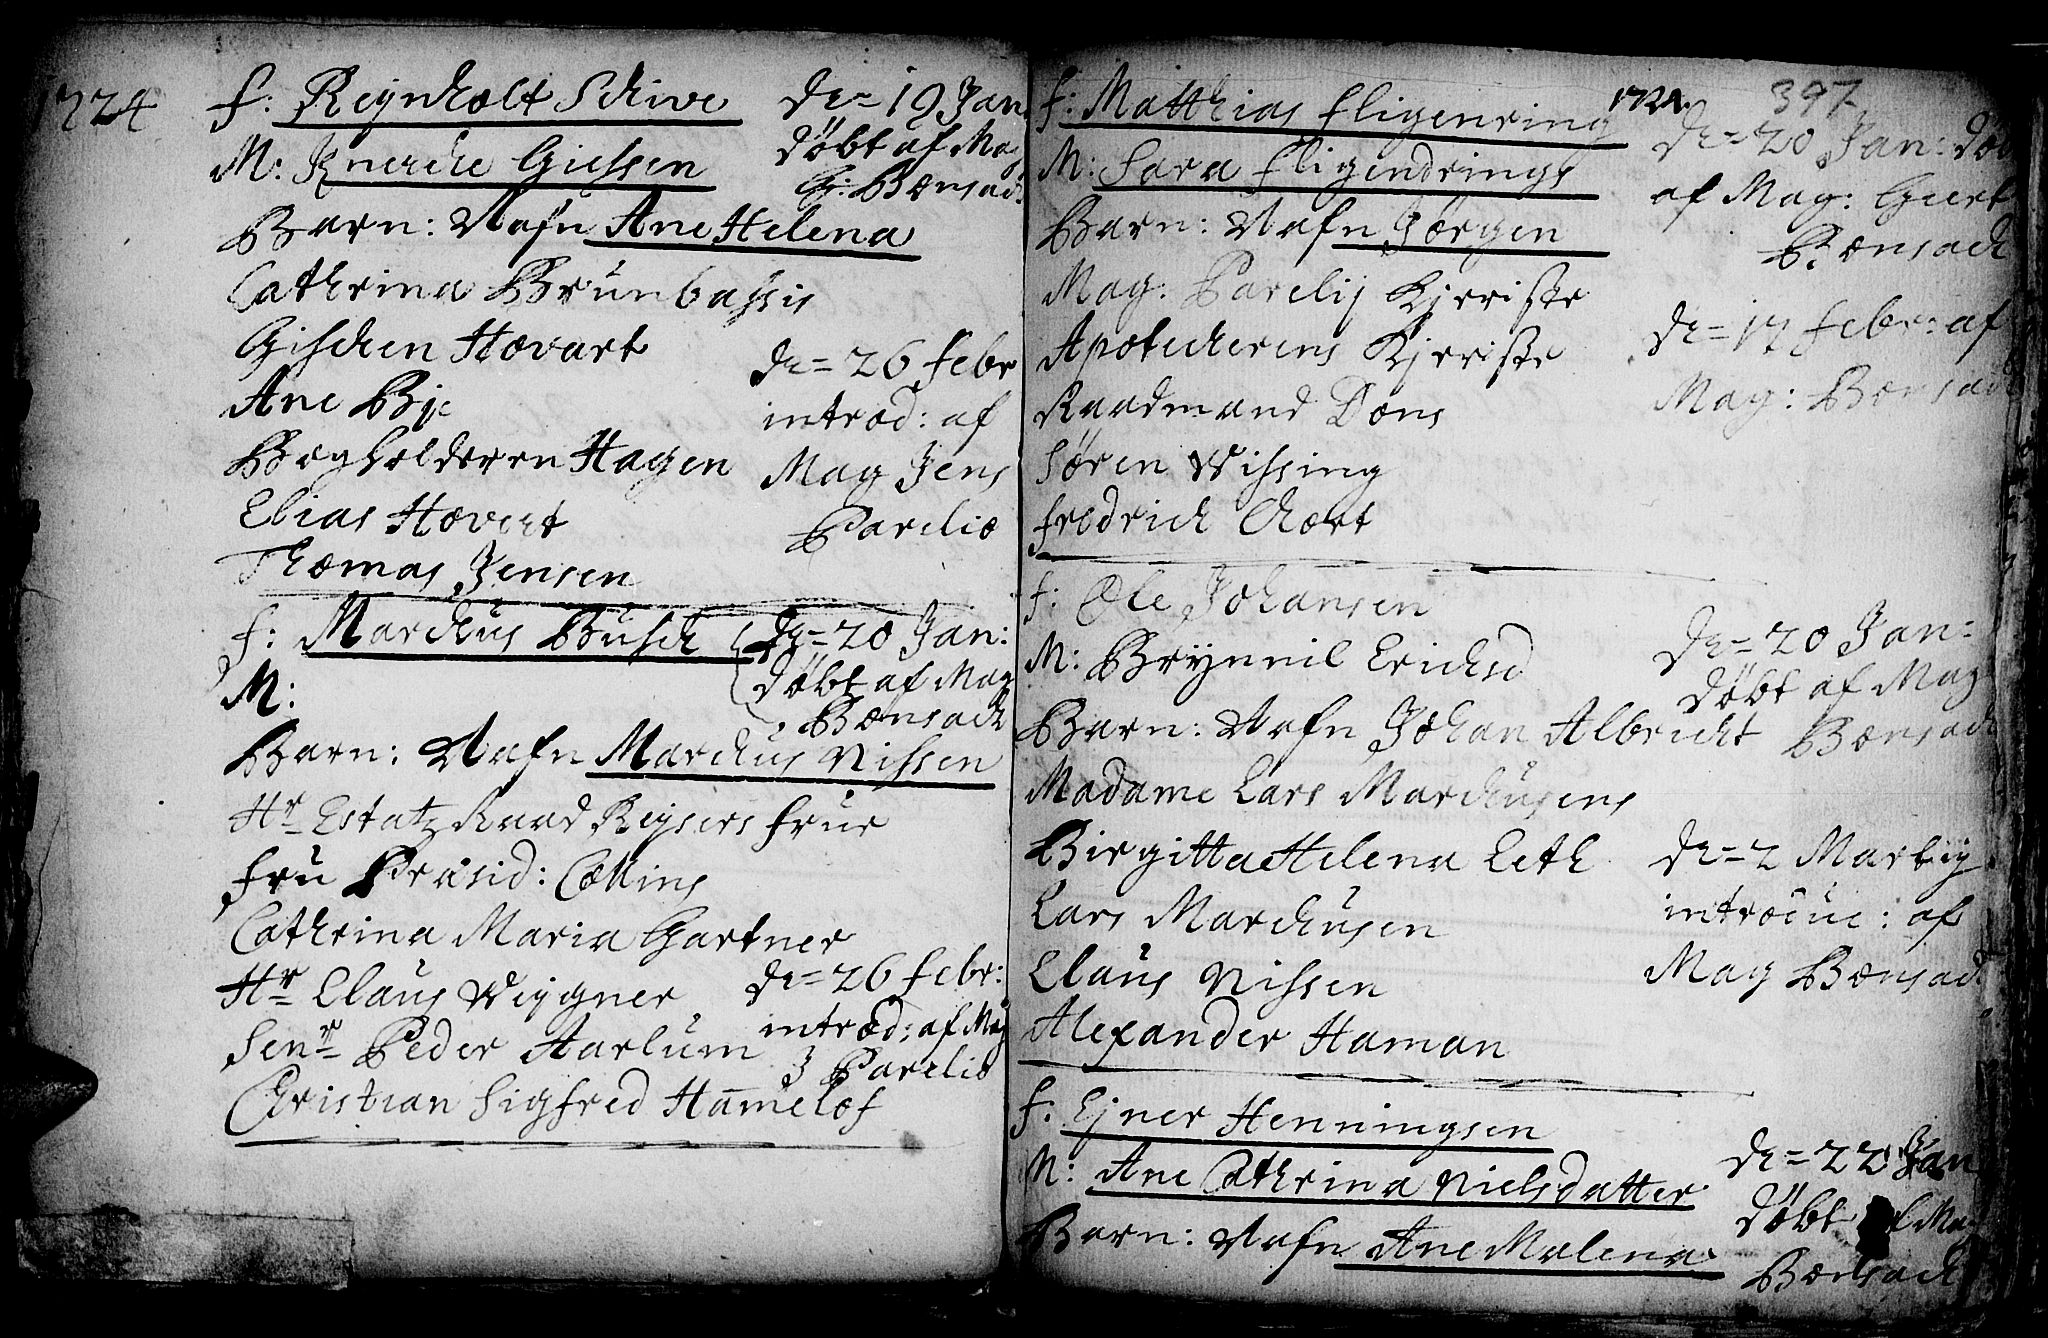 1724
F: Reynholt Schive
M: Knerche Giessen
Barn: Nafn Ane Helena
Cathrina Brünbassis
Gischen Hovart
Ane Bje
Bogholderen Hagen
Elias Hovert
Thomas Jensen
de= 19 Jan
døbt af Mag
G: Bonsach
de= 26 Febr
introd: af
Mag Jens
Parelio
F: Marchus Büsch
M:
Barn: Nafn Marchus Nissen
Hr Estatz Raad Reysers Frue
Fru Præsid: Collins
Cathrina Maria Gartner
Hr Claus Wiygner
Senr Peder Aarlum
Christian Sigfred Hamelof
de= 20 Jan:
døbt af Mag
Bonsach
de= 26 Febr:
introd: af Mag
J Parelio
1724.
397
F: Matthias Fligenring
M: Sara Fligendrings
Barn: Nafn Jørgen
Mag: Parelij Kjeriste
Apotecherens Kjeriste
Raadmand Dons
Søren Wissing
Fredrich Chort
de= 20 Jan: døbt
af Mag: Geert
Bonsach
de= 17 Febr: af
Mag: Bonsach
F: Ole Johansen
M: Brynnil Erichsd
Barn: Nafn Johan Albricht
Madame Lars Marchusens
Birgitta Helena Leth
Lars Marchusen
Claus Nissen
Alexander Haman
de= 20 Jan:
døbt af Mag
Bonsach
de= 2 Martij
introduc: af
Mag Bonsach
F: Ejner Henningsen
M: Ane Cathrina Nielsdatter
Barn: Nafn Ane Malena
de= 22 Jan
døbt af Mag
Bonsach